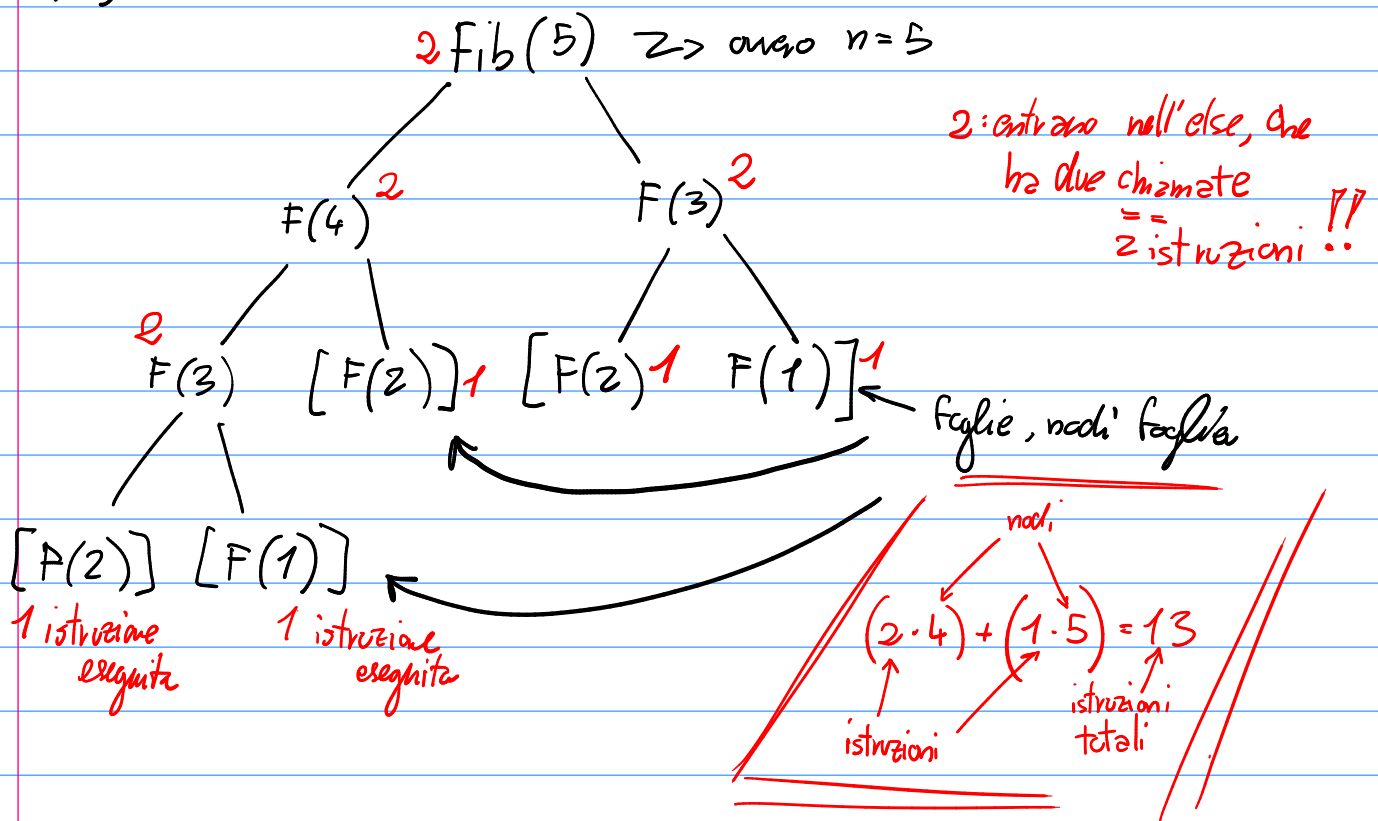 2 Fib(5) => ovvero n=5
2: entrano nell'else, che
ha due chiamate
==
2 istruzioni !!
F(4) 2
F(3) 2
2
F(3) [F(2)] 1 [F(2) 1 F(1)] 1
foglie, nodi foglia
[F(2)] [F(1)]
1 istruzione
eseguita
1 istruzione
eseguita
nodi
(2·4)+(1·5)=13
istruzioni
istruzioni
totali